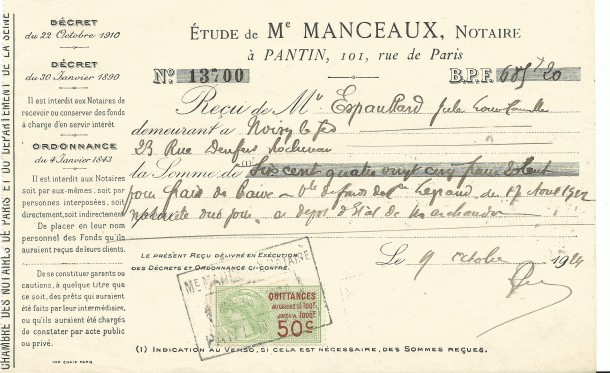 CHAMBRE DES NOTAIRES DE PARIS ET DU DÉPARTEMENT DE LA SEINE
DÉCRET
du 22 Octobre 1910
DÉCRET
du 30 Janvier 1890
Il est interdit aux Notaires de
recevoir ou conserver des fonds
à charge d'en servir intérêt
ORDONNANCE
du 4 Janvier 1843
Il est interdit aux Notaires,
soit par eux-mêmes, soit par
personnes interposées, soit
directement, soit indirectement
De placer en leur nom
personnel des Fonds qu'ils
auraient reçus de leurs clients.
De se constituer garants ou
cautions, à quelque titre que
ce soit, des prêts qui auraient
été faits par leur intermédiaire,
ou qu'ils auraient été chargés
de constater par acte public
ou privé.
ÉTUDE de Me MANCEAUX, NOTAIRE
à PANTIN, 101, rue de Paris
No 13700 B.P.F. 685 20
Reçu de Mr Espaullard Jules
demeurant à Noisy le Sec
23 Rue Denfert Rochereau
la Somme de (1) Six cent quatre vingt cinq francs
pour frais de du 17 Août 1922
dépôt d'Etat de Marchandises
LE PRÉSENT REÇU DÉLIVRÉ EN EXÉCUTION
DES DÉCRETS ET ORDONNANCE CI-CONTRE.
Le 9 octobre 1924
NOTAIRE
PANTIN
QUITTANCES
AU-DESSUS DE 100F
JUSQU'À 1000F
50c
(1) INDICATION AU VERSO, SI CELA EST NÉCESSAIRE, DES SOMMES REÇUES.